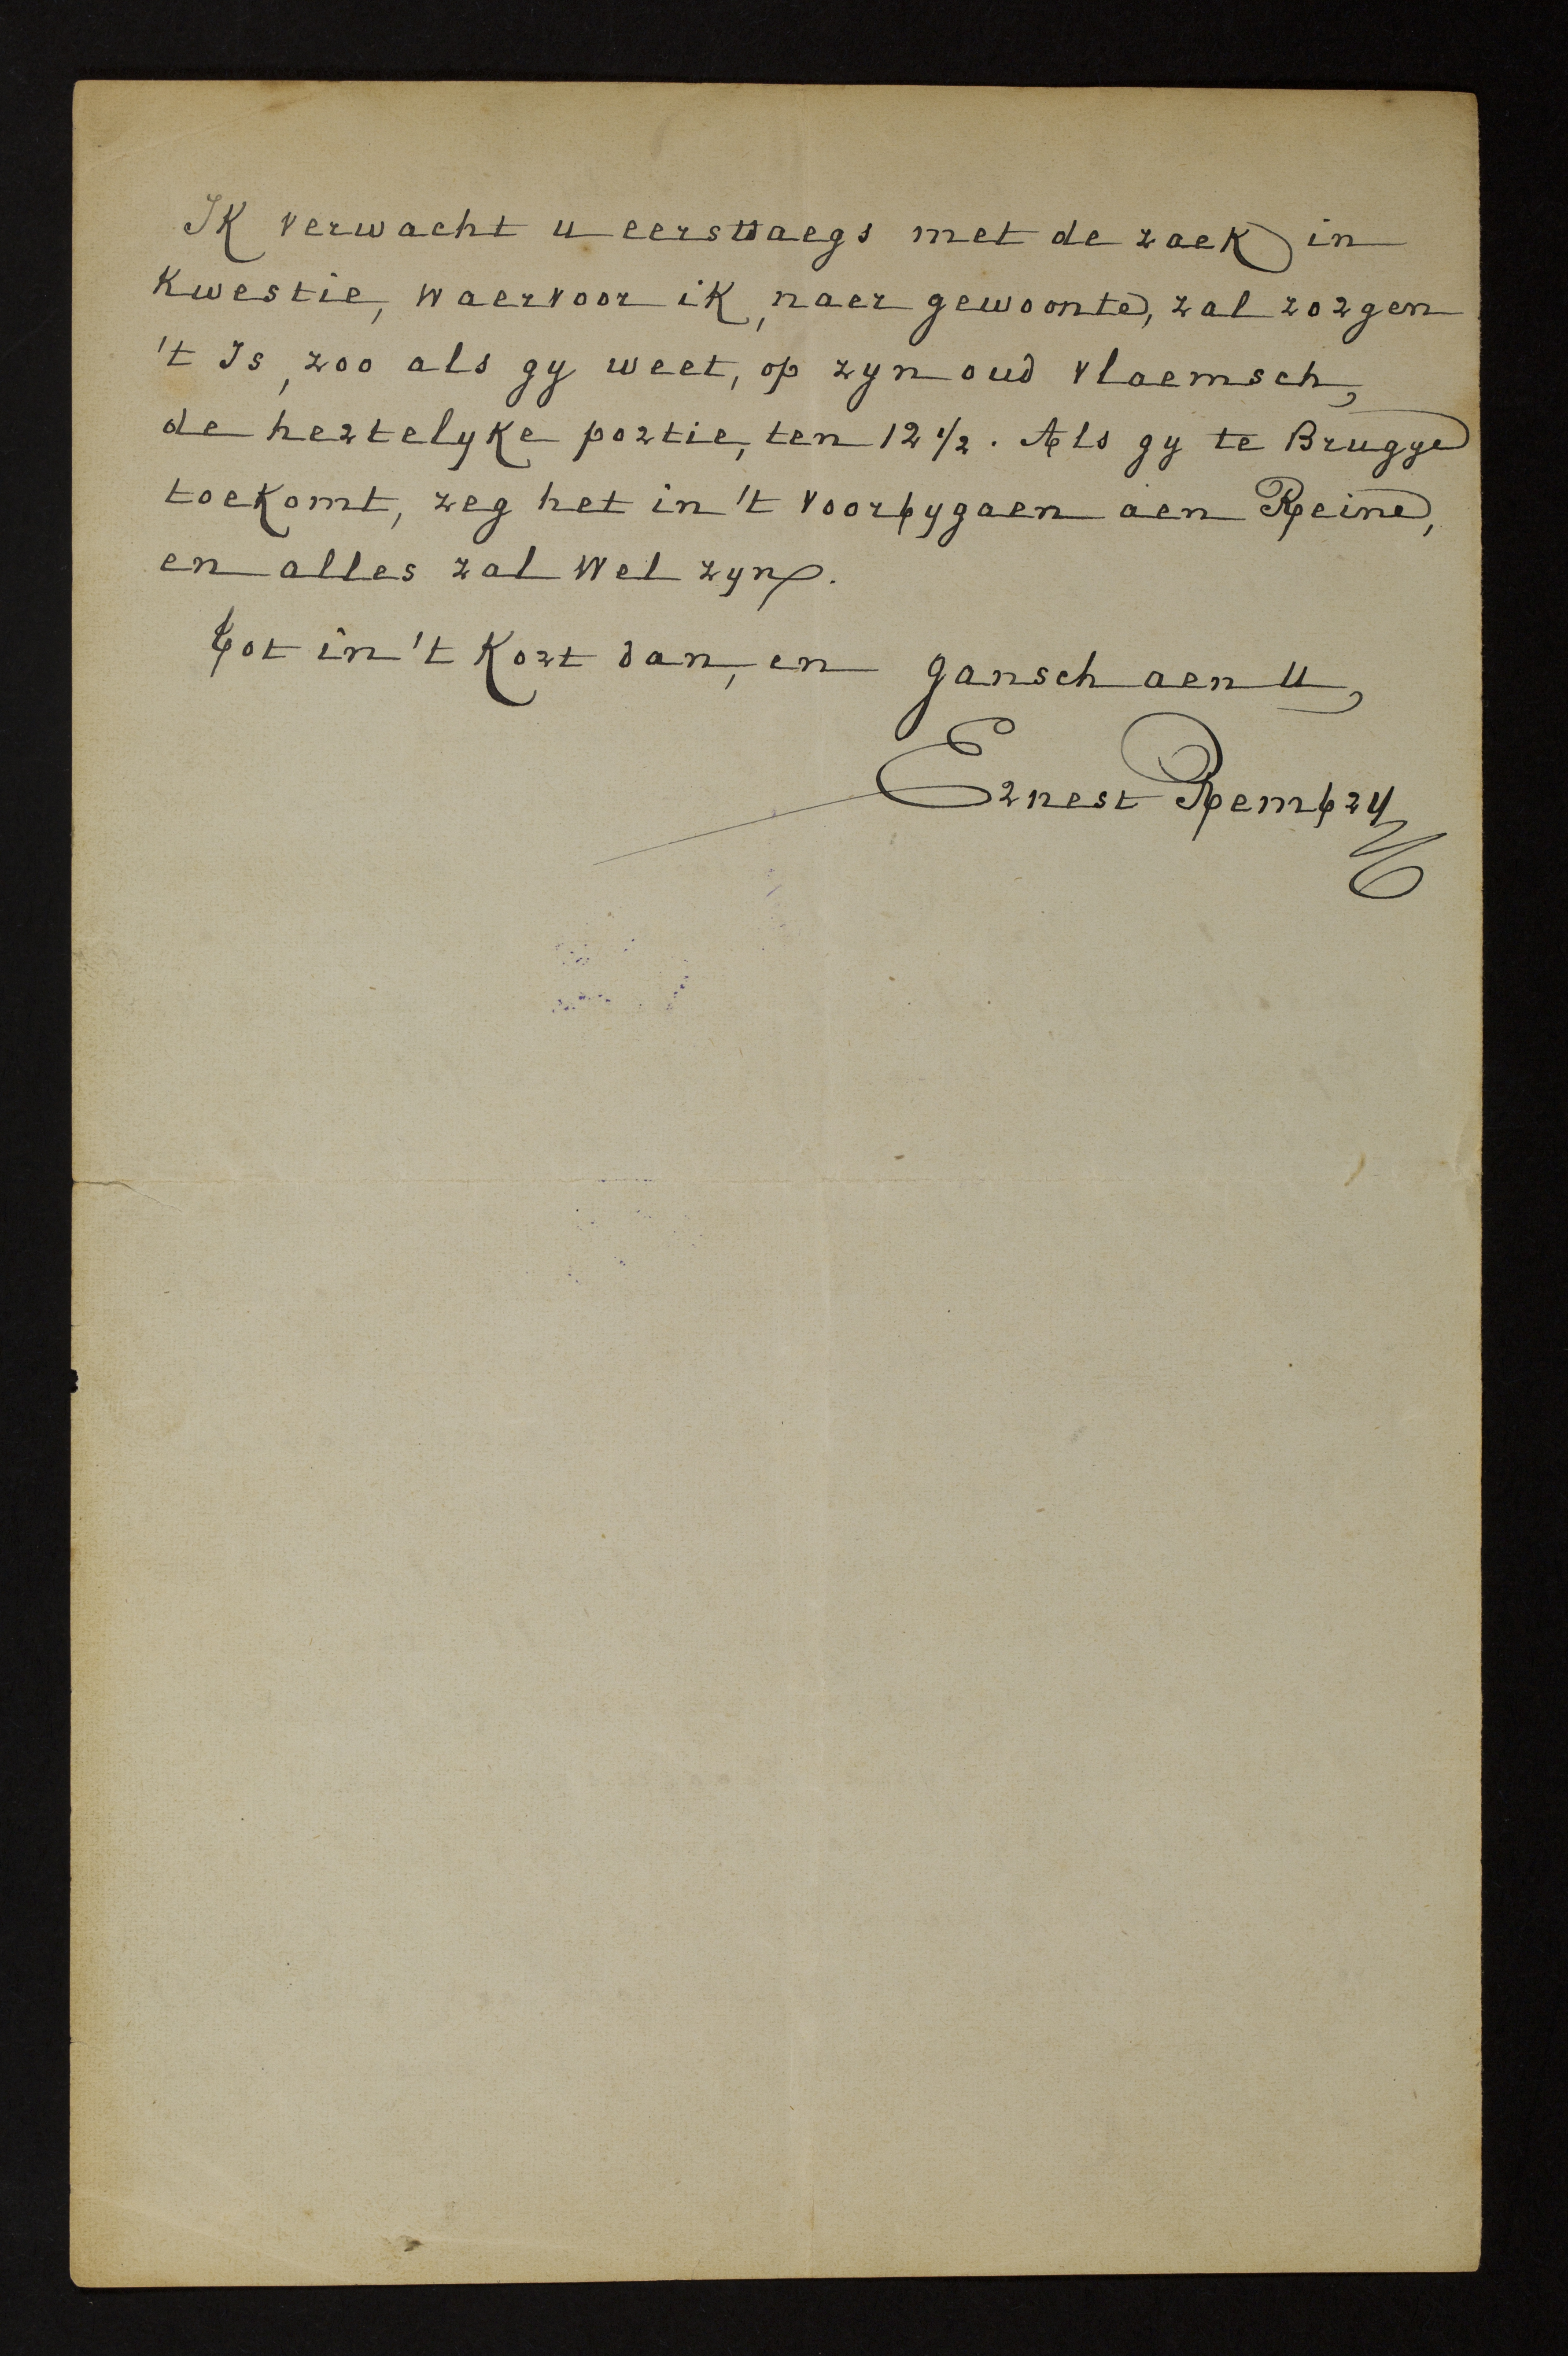 Ik verwacht u eerstdaegs met de zaek in
kwestie, waervoor ik, naer gewoonte, zal zorgen
't Is, zoo als gy weet, op zyn oud vlaemsch,
de hertelyke portie, ten 12 1/2. Als gy te Brugge
toekomt, zeg het in 't voorbygaen aen Reine,
en alles zal wel zyn.
Tot in 't kort dan, en gansch aen u,
Ernest Rembry